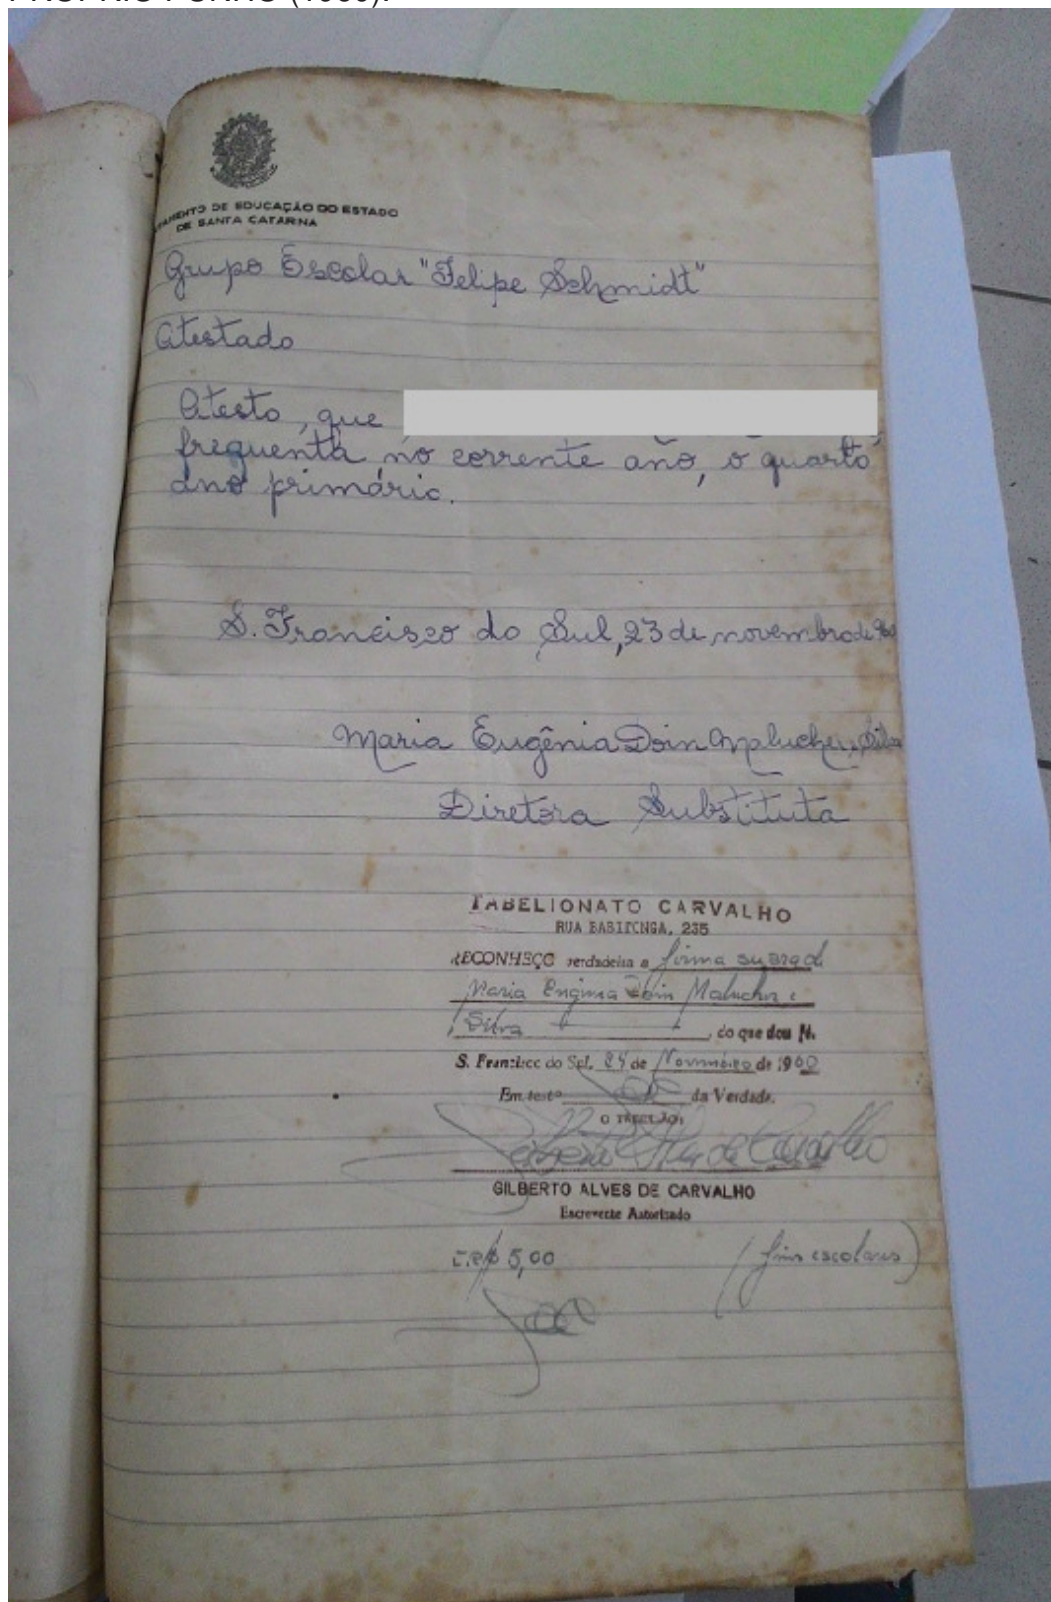 PRÓPRIO PUNHO (1960).
DEPARTAMENTO DE EDUCAÇÃO DO ESTADO
DE SANTA CATARINA
Grupo Escolar "Felipe Schmidt"
Atestado
Atesto, que
frequenta no corrente ano, o quarto
ano primário.
S. Francisco do Sul, 23 de novembro de 960
Maria Eugênia Doin Malucher Silva
Diretora Substituta
TABELIONATO CARVALHO
RUA BABITONGA, 235
RECONHEÇO verdadeira a firma supra d
Maria Eugenia Doin Malucher e
Silva , do que dou fé.
S. Francisco do Sul, 24 de Novembro de 1960
Em testº da Verdade.
O TABELIÃO,
GILBERTO ALVES DE CARVALHO
Escrevente Autorizado
CR$ 5,00 (fins escolares)